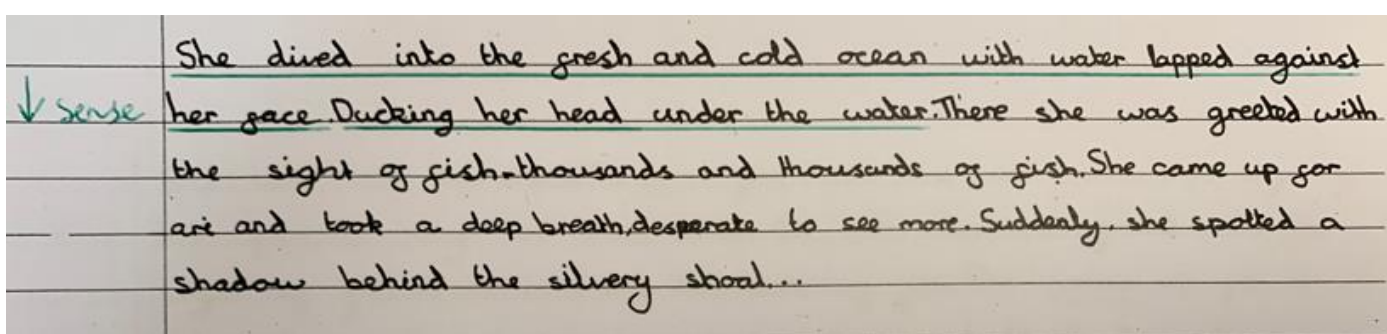 She dived into the fresh and cold ocean with water lapped against
↓ sense her face. Ducking her head under the water. There she was greeted with
the sight of fish-thousands and thousands of fish. She came up for
are and took a deep breath, desperate to see more. Suddenly, she spotted a
shadow behind the silvery shoal...